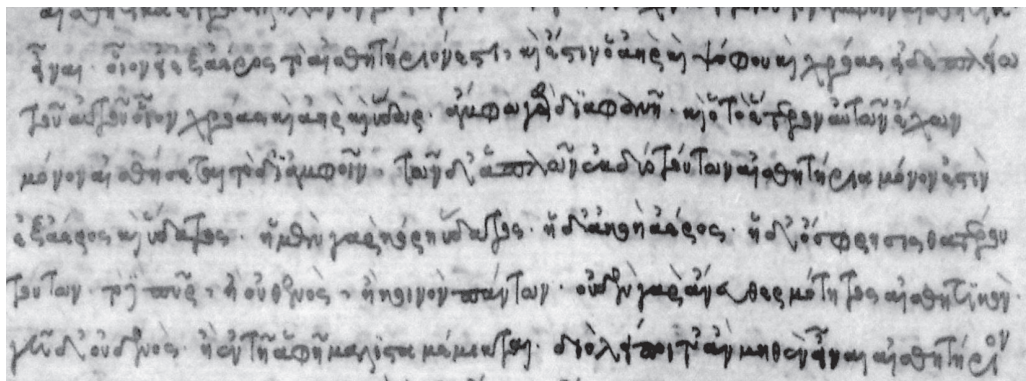 εἶναι· οἷον εἰ ἐξ ἀέρος τὸ αἰσθητήριόν ἐστι, καὶ ἔστιν ὁ ἀὴρ καὶ ψόφου καὶ χρόας· εἰ δὲ πλείω
τοῦ αὐτοῦ οἷον χρόας καὶ ἀὴρ καὶ ὕδωρ· ἄμφω γὰρ διαφανῆ· καὶ ὁ τὸ ἕτερον αὐτῶν ἔχων
μόνον αἰσθήσεται τοῦ δι' ἀμφοῖν· τῶν δ' ἁπλῶν ἐκ δύο τούτων αἰσθητήρια μόνον ἐστὶν
ἐξ ἀέρος καὶ ὕδατος· ἡ μὲν γὰρ κόρη ὕδατος· ἡ δ' ἀκοὴ ἀέρος· ἡ δ' ὄσφρησις θατέρου
τούτων· τὸ δὲ πῦρ, ἢ οὐθενὸς, ἢ κοινὸν πάντων· οὐδὲν γὰρ ἄνευ θερμότητος αἰσθητικόν·
γῆ δ' οὐδενὸς· ἢ ἐν τῇ ἁφῇ μάλιστα μέμικται· διὸ λείποιτ' ἂν μηθὲν εἶναι αἰσθητήριον